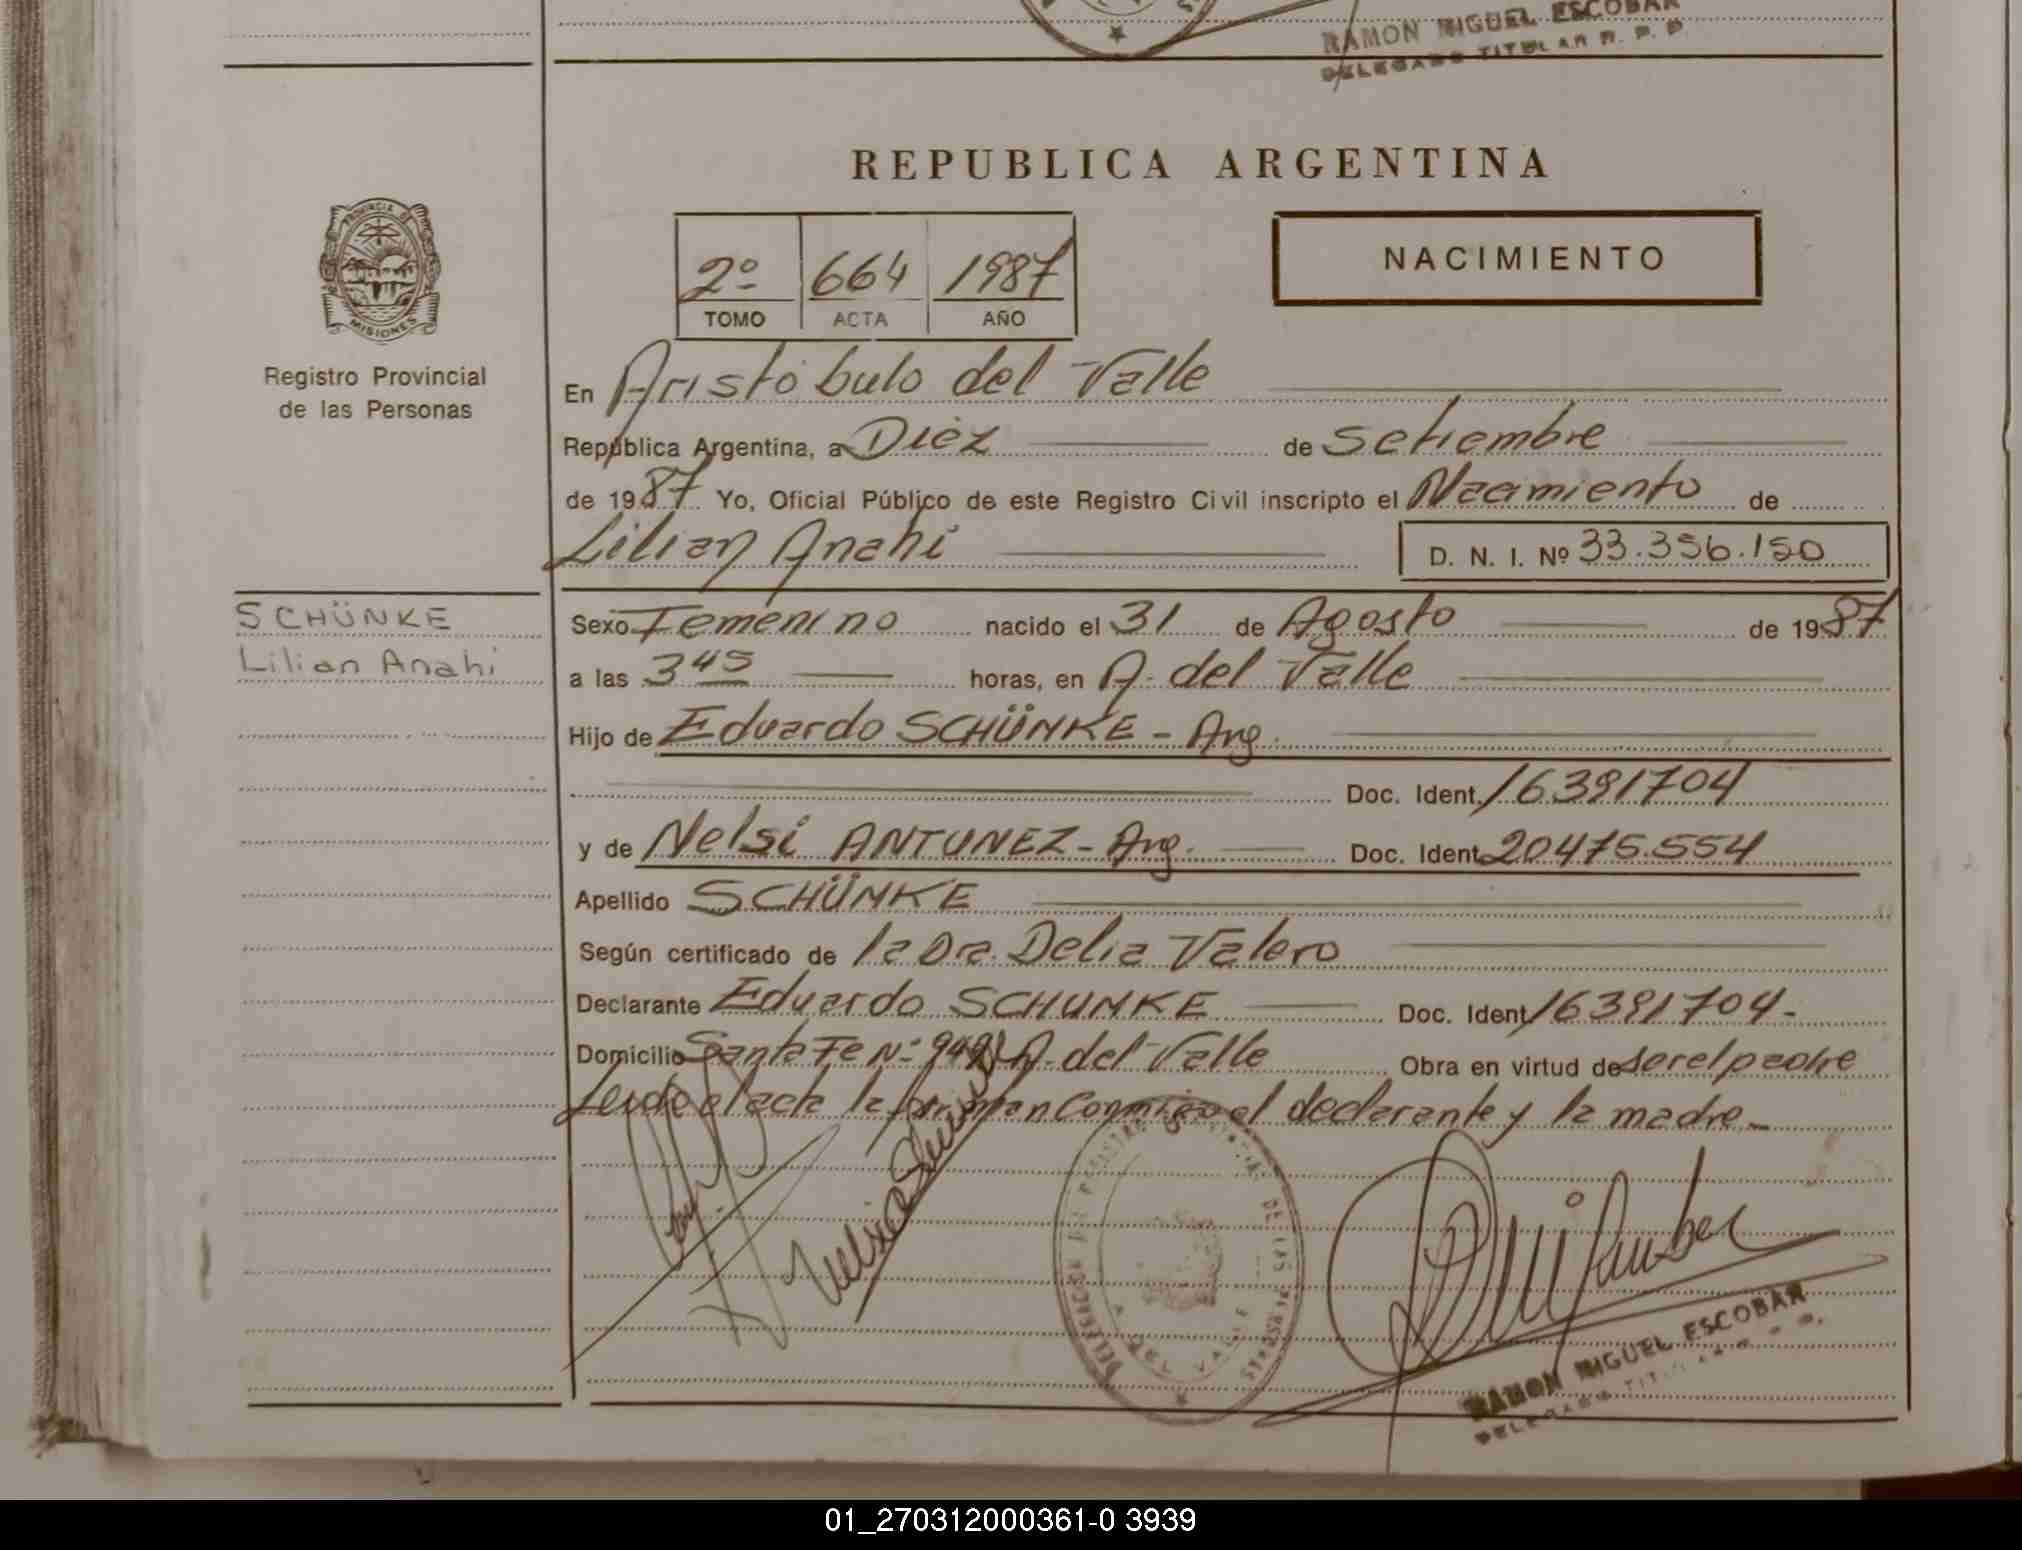 RAMON MIGUEL ESCOBAR
DELEGADO TITULAR R. P. P.
REPUBLICA ARGENTINA
PROVINCIA DE
MISIONES
Registro Provincial
de las Personas
2º 664 1987
TOMO ACTA AÑO
NACIMIENTO
En Aristóbulo del Valle
República Argentina, a Diez de Setiembre
de 1987 Yo, Oficial Público de este Registro Civil inscripto el Nacimiento de
Lilian Anahi D. N. I. Nº 33.356.150
SCHÜNKE
Lilian Anahi
Sexo Femenino nacido el 31 de Agosto de 1987
a las 3 45 horas, en A. del Valle
Hijo de Eduardo SCHÜNKE - Arg.
Doc. Ident. 16391704
y de Nelsi ANTUNEZ - Arg. Doc. Ident. 20475.554
Apellido SCHÜNKE
Según certificado de la Dra. Delia Valero
Declarante Eduardo SCHUNKE Doc. Ident. 16391704-
Domicilio Santa Fe Nº A. del Valle Obra en virtud de ser el padre
Leida el acta la firman conmigo el declarante y la madre -
DE LAS PERSONAS
A. DEL VALLE
RAMON MIGUEL ESCOBAR
DELEGADO TITULAR
01_270312000361-0 3939